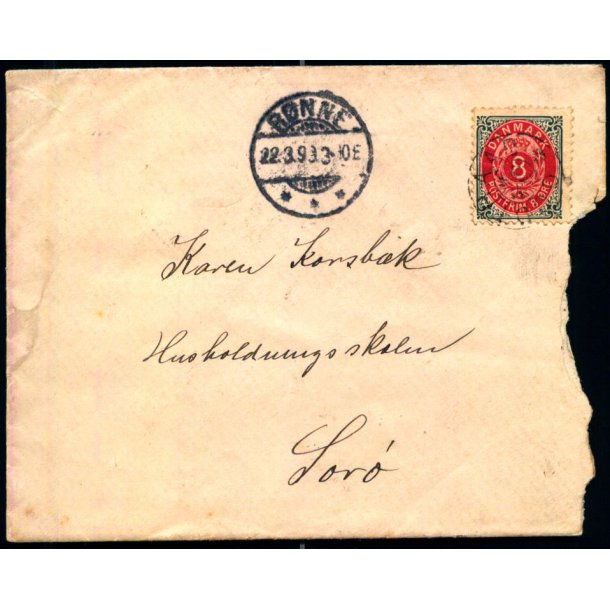 RØNNE
22.3.99.3-10E
DANMARK
8
POSTFRIM. 8 ØRE
Karen Korsbæk
Husholdningsskolen
Sorø